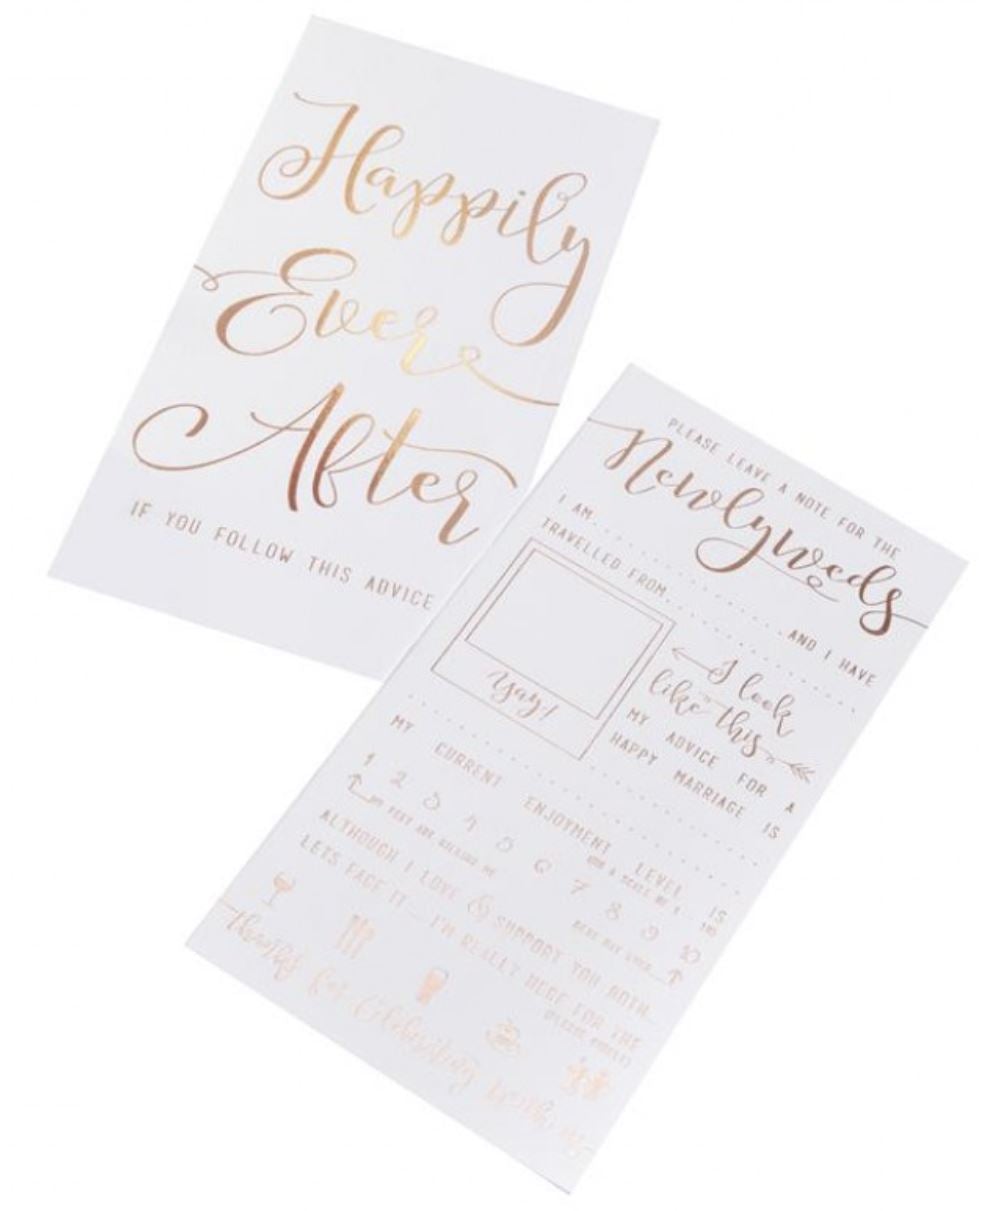 Happily
Ever
After
IF YOU FOLLOW THIS ADVICE
PLEASE LEAVE A NOTE FOR THE
Newlyweds
I AM................AND I HAVE
TRAVELLED FROM................
Yay!
I look
like this
MY ADVICE FOR A
HAPPY MARRIAGE IS
MY CURRENT ENJOYMENT LEVEL IS
ON A SCALE OF 1 - 10
1 2 3 4 5 6 7 8 9 10
MY FEET ARE KILLING ME
BEST DAY EVER
ALTHOUGH I LOVE & SUPPORT YOU BOTH...
LETS FACE IT... I'M REALLY HERE FOR THE
(PLEASE CIRCLE)
thanks for celebrating with us